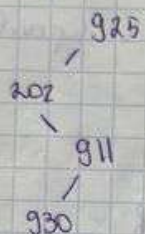 925
202
911
930